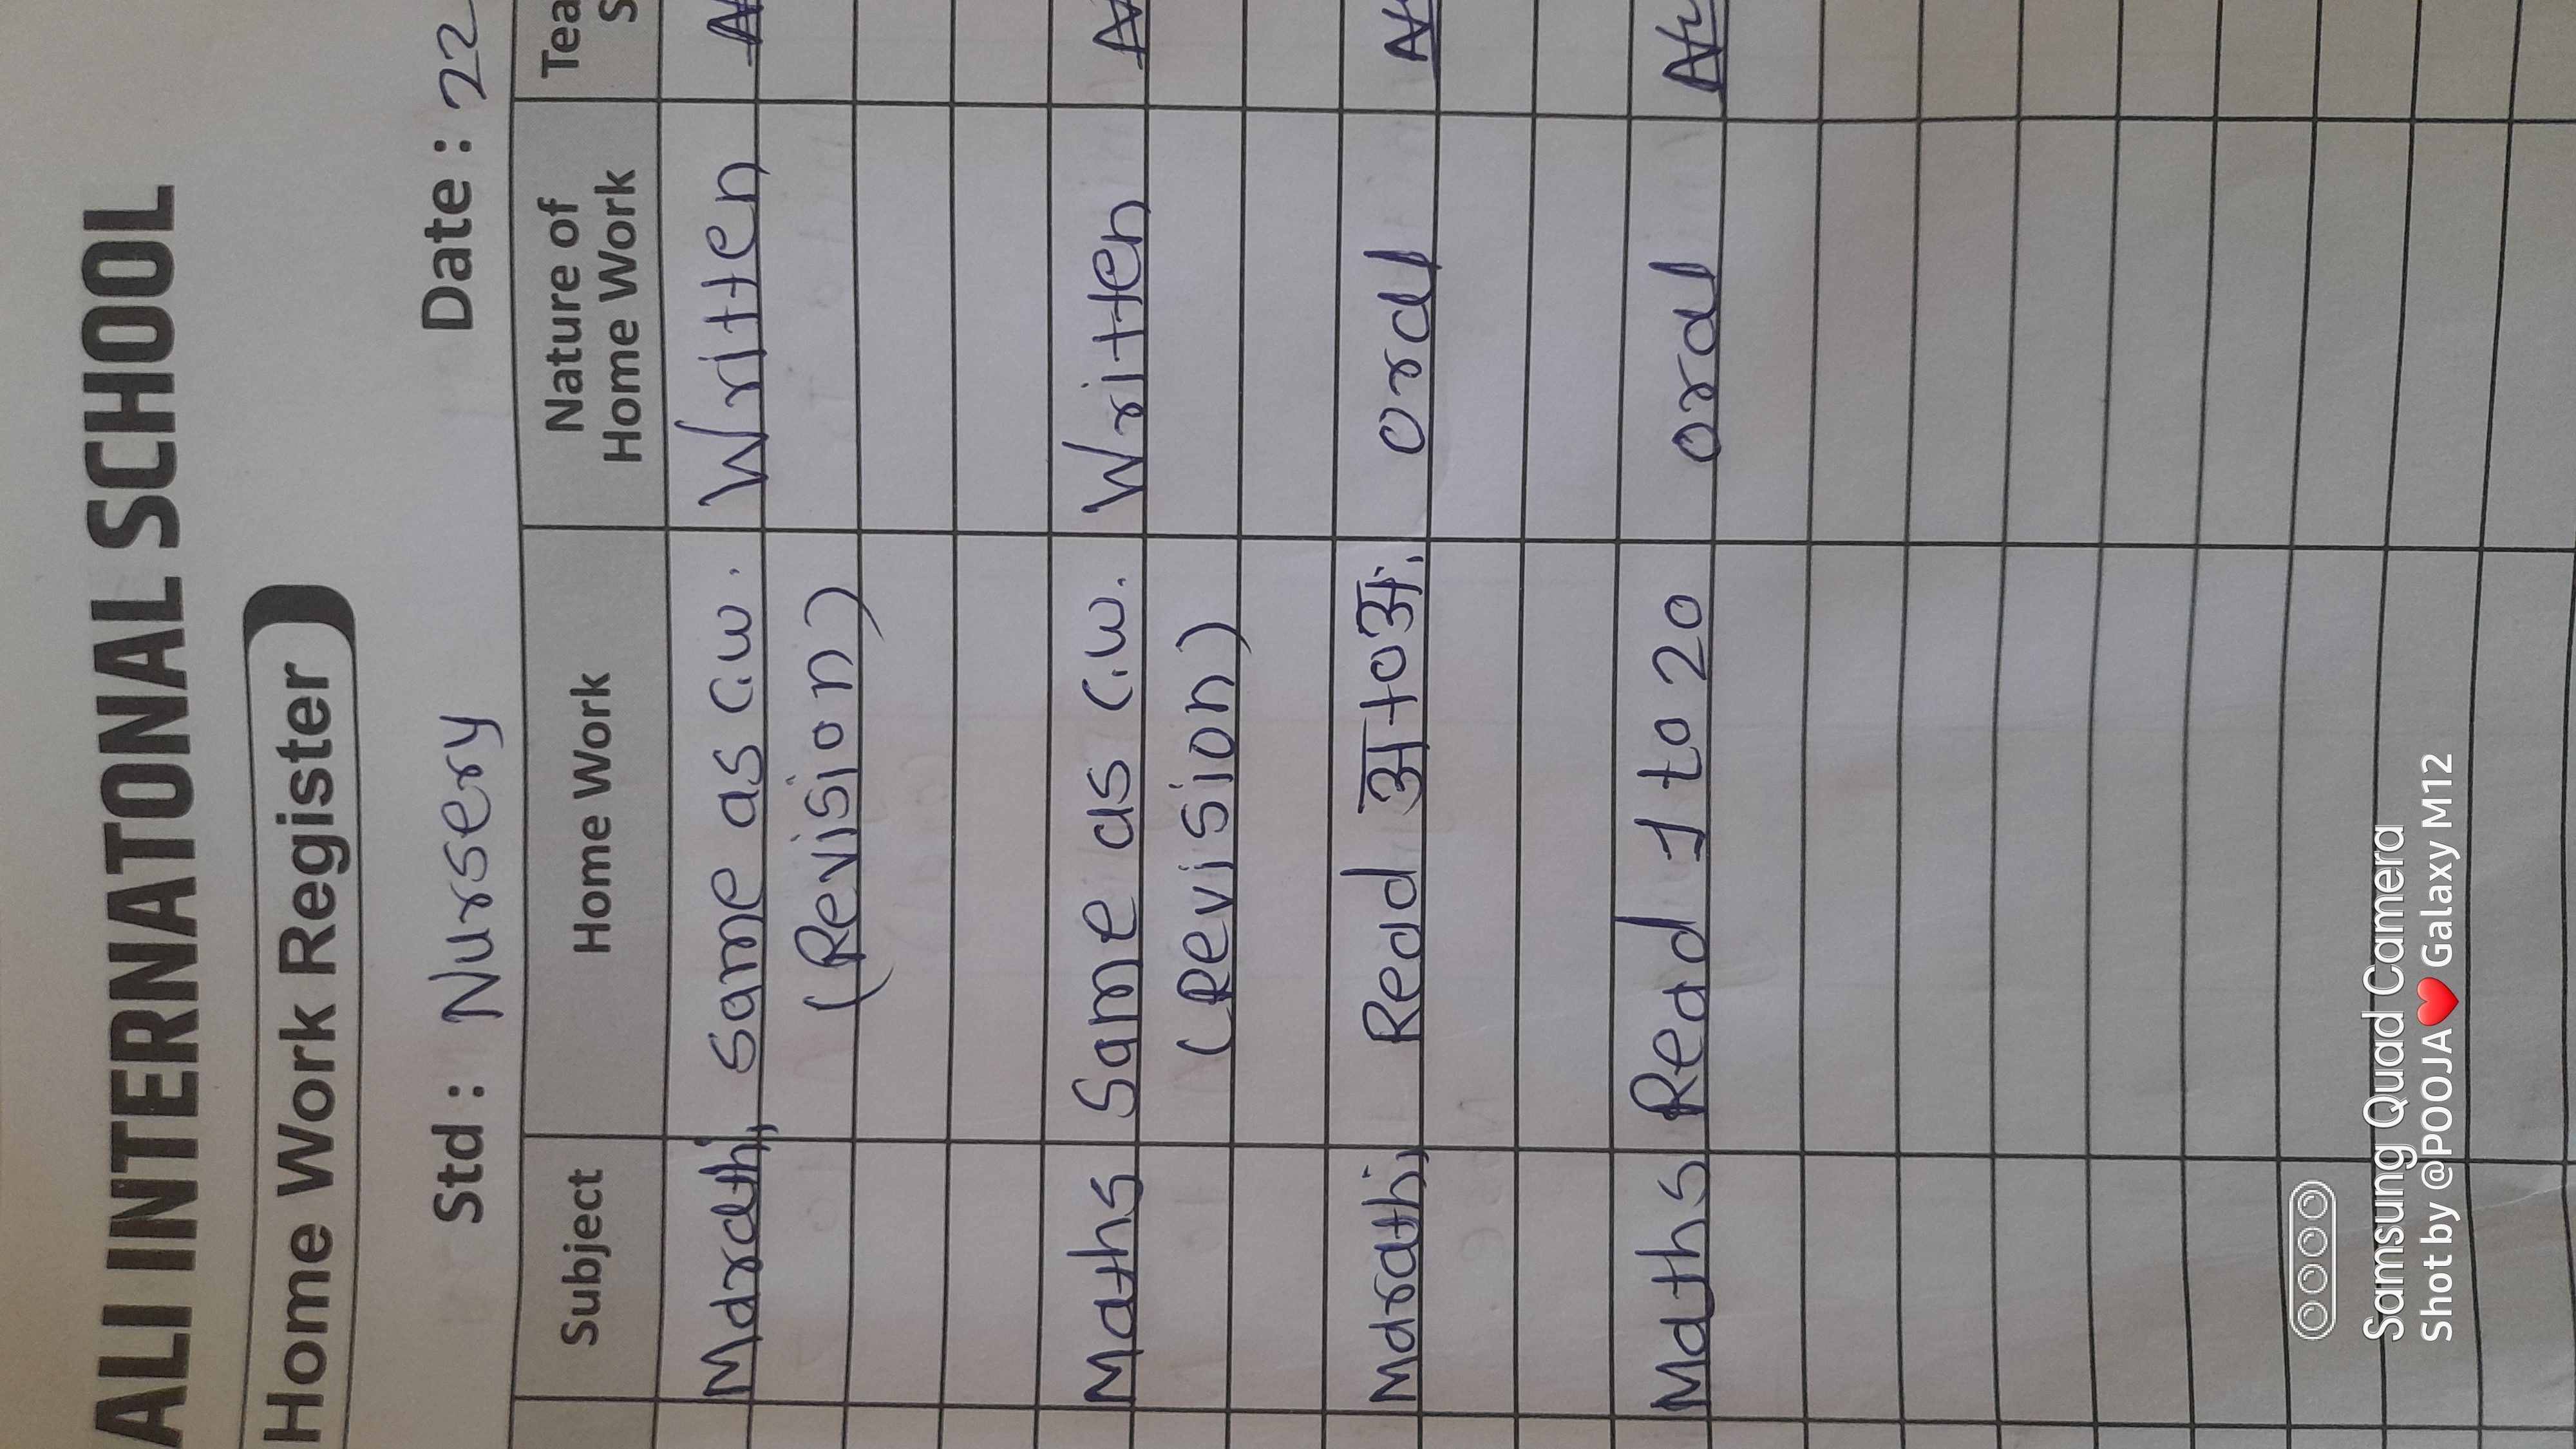 ALI INTERNATONAL SCHOOL
Home Work Register
Std : Nursery Date : 22
Subject Home Work Nature of Home Work
Marathi Same as C.W. Written
(Revision)
Maths Same as C.W. Written
(Revision)
Marathi Read अ to अः oral
Maths Read 1 to 20 oral
Samsung Quad Camera
Shot by @POOJA❤️Galaxy M12